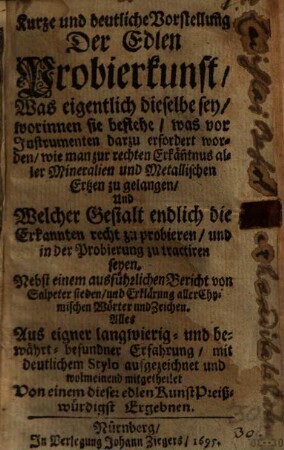 Kurze und deutliche Vorstellung
Der Edlen
Probierkunst/
Was eigentlich dieselbe sey/
worinnen sie bestehe/ was vor
Instrumenten darzu erfordert wor-
den/ wie man zur rechten Erkäntnus al-
ler Mineralien und Metallischen
Ertzen zu gelangen/
Und
Welcher Gestalt endlich die
Erkannten recht zu probieren/ und
in der Probierung zu tractiren
seyen.
Nebst einem ausführlichen Bericht von
Salpeter sieden/ und Erklärung aller Chy-
mischen Wörter und Zeichen.
Alles
Aus eigner langwierig- und be-
währt- befundner Erfahrung/ mit
deutlichem Stylo aufgezeichnet und
wolmeinend mitgetheilet
Von einem dieser edlen Kunst Preiß-
würdigst Ergebnen.
Nürnberg/
In Verlegung Johann Ziegers/ 1695.